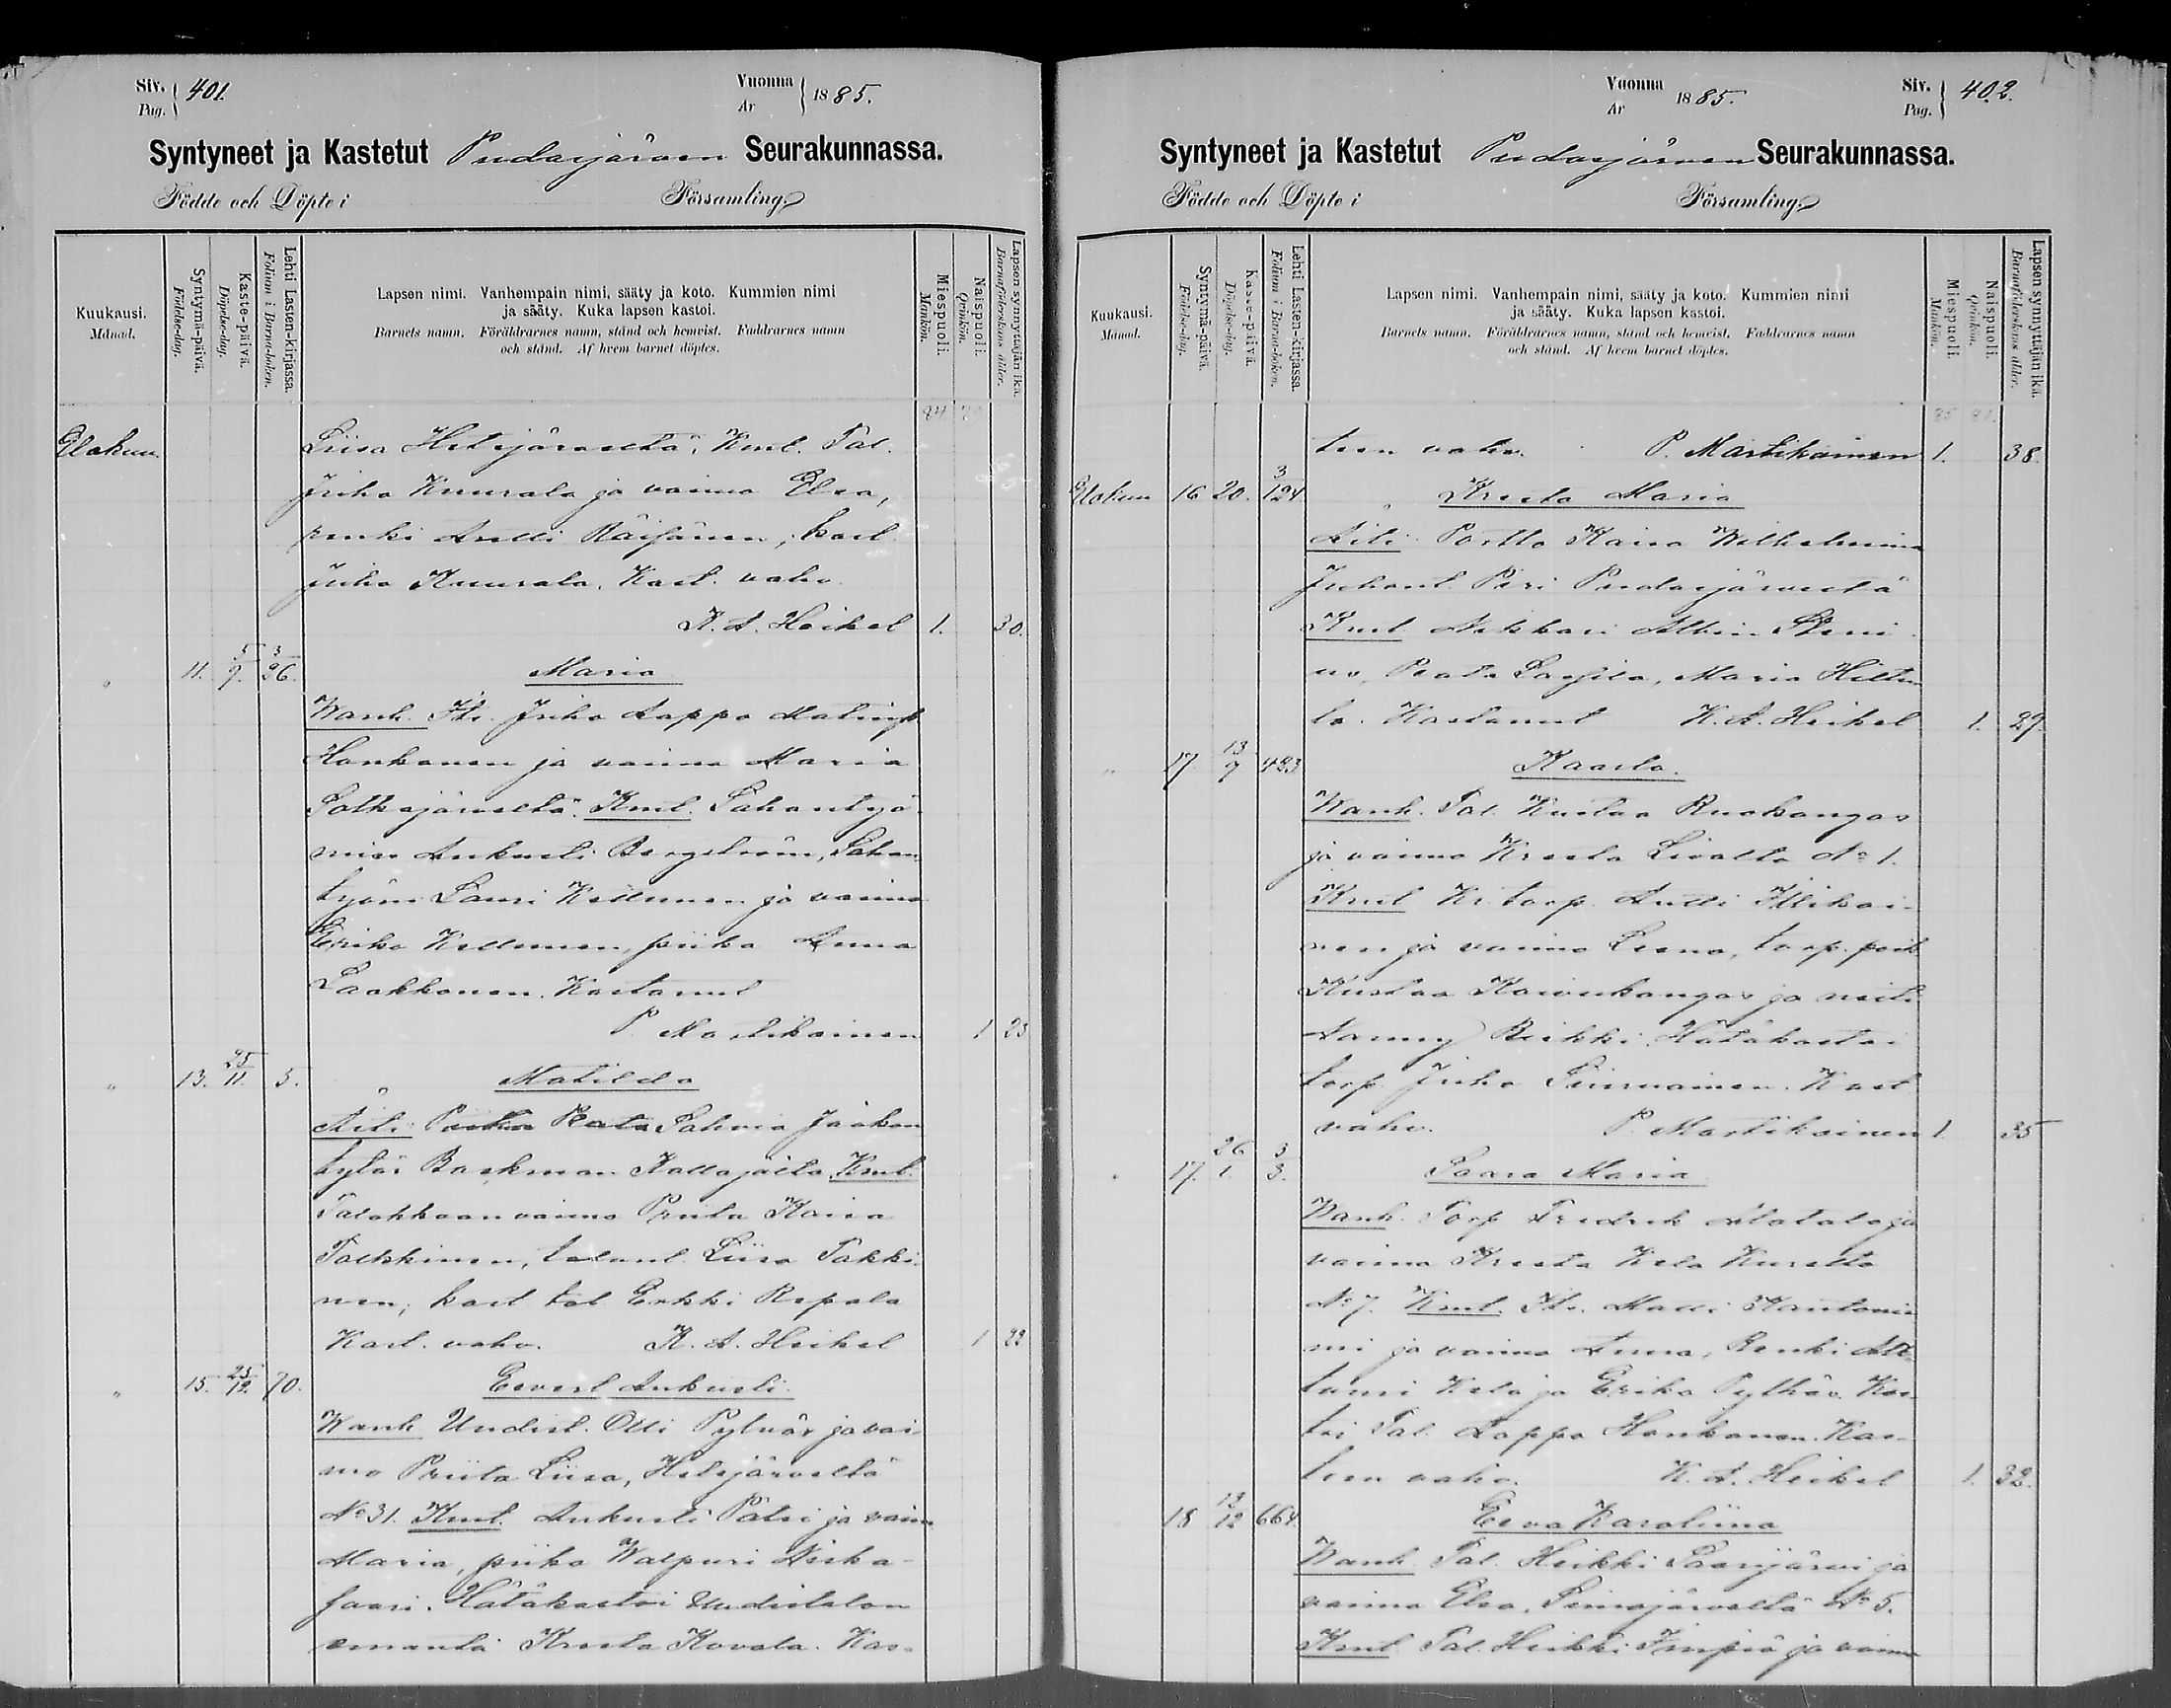 Siv. 401. Vuonna 1885.
Pag. Ar
Syntyneet ja Kastetut Pudasjärven Seurakunnassa.
Födde och Döpte i Församling.
Kuukausi. Månad.
Syntymä-päivä. Födelse-dag.
Kaste-päivä. Döpelse-dag.
Lehti Lasten-kirjassa. Folium i Barna-boken.
Lapsen nimi. Vanhempain nimi, sääty ja koto. Kummien nimi
ja sääty. Kuka lapsen kastoi.
Barnets namn. Föräldrarnes namn, stånd och hemvist. Faddrarnes namn
och stånd. Af hvem barnet döptes.
Miespuoli. Mankön.
Naispuoli. Qvinkön.
Lapsen synnyttäjän ikä. Barnaföderskans ålder.
84
Elokuu. Liisa Hetejärveltä, Kml. Tal.
Juho Kuurala ja vaimo Elsa,
renki Antti Räisänen; kast.
Juho Kuurala. Kast. vahv.
K. A. Heikel 1. 30.
" 11. 5/9. 3/26. Maria
Wanh. Its. Juho Lappo Matinp.
Honkanen ja vaimo Maria
Sotkajärveltä. Kml. Sahantyö
mies Aukusti Bergström, Sahan
työm. Lauri Kellunen ja vaimo
Erika Kellunen, piika Anna
Laakkonen. Kastanut
P. Martikainen 1 23
" 13. 25/11. 5. Matilda
Äiti: Piika Reeta Sahvia Jaakon
tytär Backman Kollajalta. Kml.
Talokkaanvaimo Priita Kaisa
Takkinen, talont. Liisa Takki
nen; kast tal Erkki Repola
Kast. vahv. K. A. Heikel 1 22
" 15. 25/12. 70. Eevert Aukusti.
Wanh Uudist. Olli Pylväs ja vai
mo Priita Liisa, Hetejärveltä
No 31. Kml. Aukusti Pätsi ja vaim
Maria, piika Walpuri Niska-
saari. Hätäkastoi Uudistalon
emäntä Kreeta Kovala. Kas-
Vuonna 1885. Siv. 402.
Ar Pag.
Syntyneet ja Kastetut Pudasjärven Seurakunnassa.
Födde och Döpte i Församling.
Kuukausi. Månad.
Syntymä-päivä. Födelse-dag.
Kaste-päivä. Döpelse-dag.
Lehti Lasten-kirjassa. Folium i Barna-boken.
Lapsen nimi. Vanhempain nimi, sääty ja koto. Kummien nimi
ja sääty. Kuka lapsen kastoi.
Barnets namn. Föräldrarnes namn, stånd och hemvist. Faddrarnes namn
och stånd. Af hvem barnet döptes.
Miespuoli. Mankön.
Naispuoli. Qvinkön.
Lapsen synnyttäjän ikä. Barnaföderskans ålder.
85 81.
teen vahv. P. Martikainen 1. 38.
Elokuu 16 20. 3/124. Kreeta Maria
Äiti: Portto Kaisa Wilhelmina
Juhont. Piri Pudasjärveltä
Kml. Nikkari Albin
Peeta Maria Hiltu
la. Kastanut K. A. Heikel 1. 29.
" 17. 13/9 423 Kaarlo.
Wanh. Tal. Kustaa Ruokangas
ja vaimo Kreeta Livolta No 1.
Kml Kr. torp. Antti Illikai-
nen ja vaimo Leena, torp. poik
Kustaa Kaivukangas ja neiti
Fanny Hätäkastoi
torp. Juho Kast
vahv. P. Martikainen 1. 35
" 17. 26/1. 3/3. Saara Maria
Wanh. Torp Fredrik Alatalo ja
vaimo Kreeta Kela Kurelta
No 7. Kml. Its. Matti Kantonie
mi ja vaimo Anna, Renki
Kela ja Erika Kas
toi Tal. Lappo Honkanen. Kas-
teen vahv. K. A. Heikel 1. 32.
18 12/12 664. Eeva Karoliina
Wanh. Tal. Heikki Saarijärvi ja
vaimo Elsa, No 5.
Kml Tal. Heikki Impiö ja vaimo